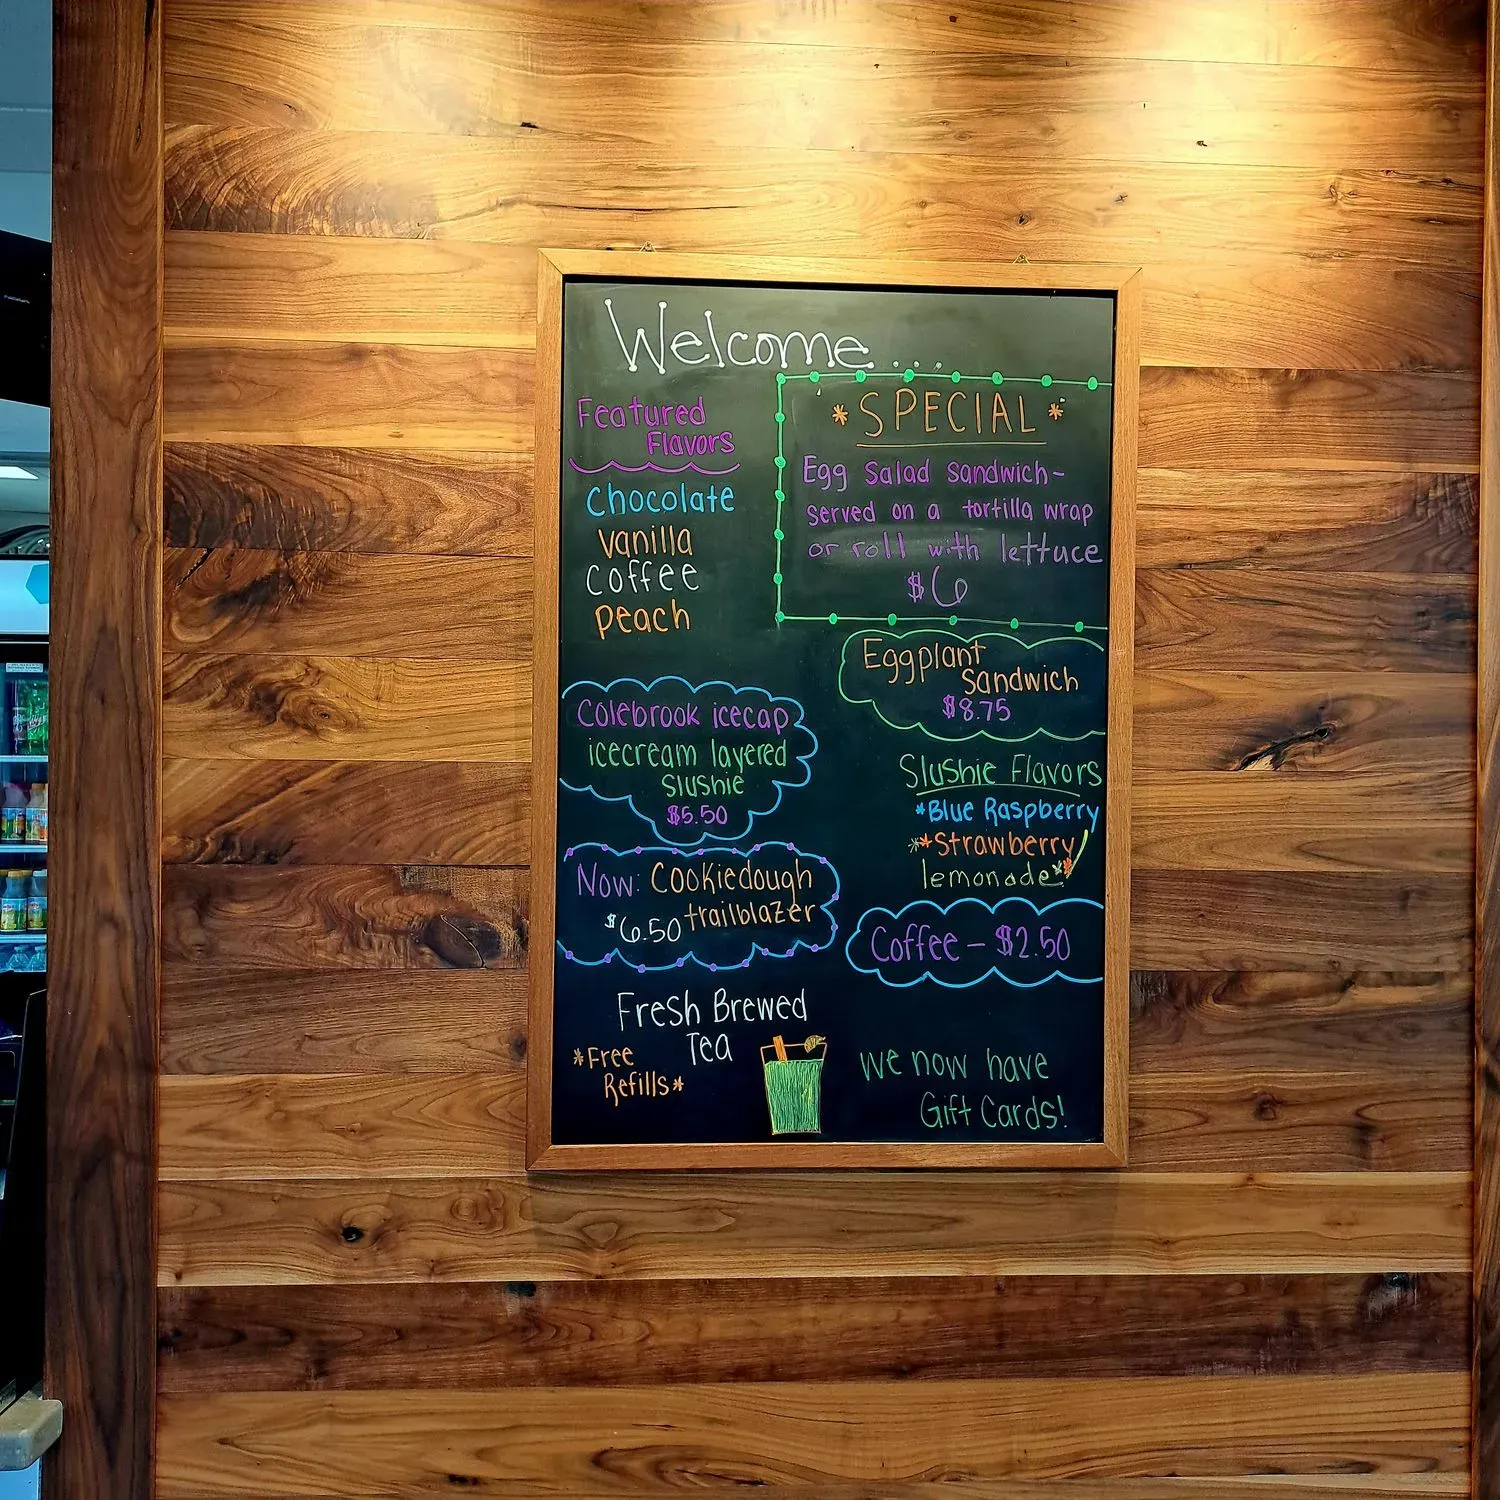 Welcome....
Featured
Flavors
Chocolate
vanilla
coffee
peach
*SPECIAL*
Egg Salad Sandwich-
served on a tortilla wrap
or roll with lettuce
$6
Eggplant
Sandwich
$8.75
Colebrook icecap
icecream layered
Slushie
$5.50
Slushie Flavors
*Blue Raspberry
**Strawberry
lemonade**
Now: Cookiedough
$6.50 trailblazer
Coffee - $2.50
Fresh Brewed
Tea
*Free
Refills*
We now have
Gift Cards!